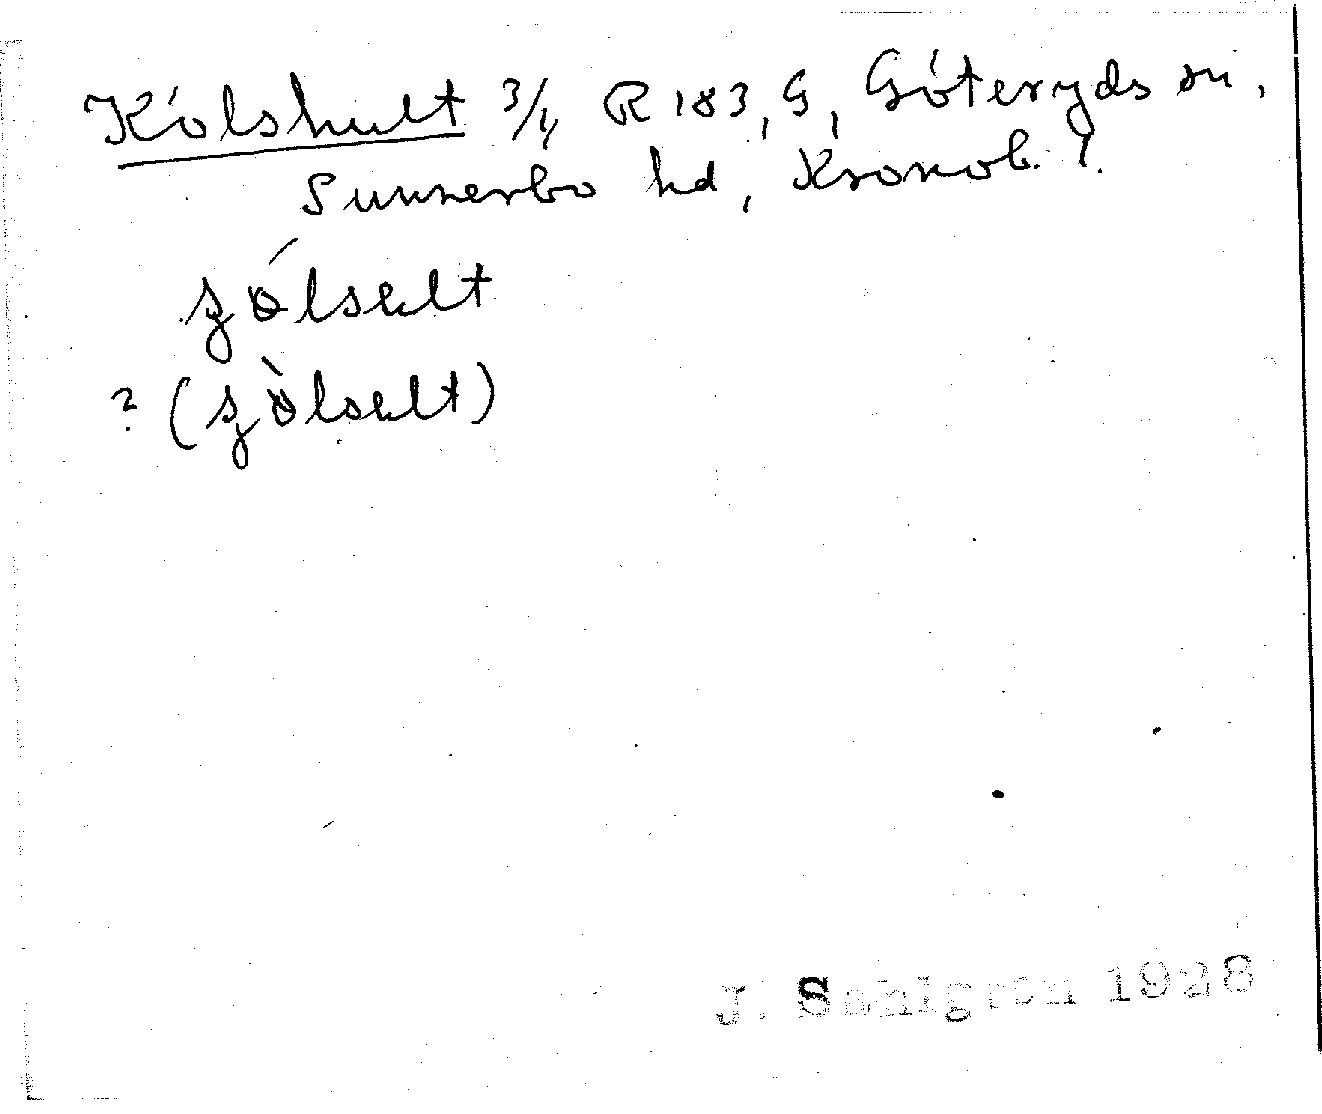 Kölshult 3/4 R 183, G, Göteryds sn,
Sunnerbo hd, Kronob. l.
ʂólsult
? (ʂòlsult)
J. Sahlgren 1928